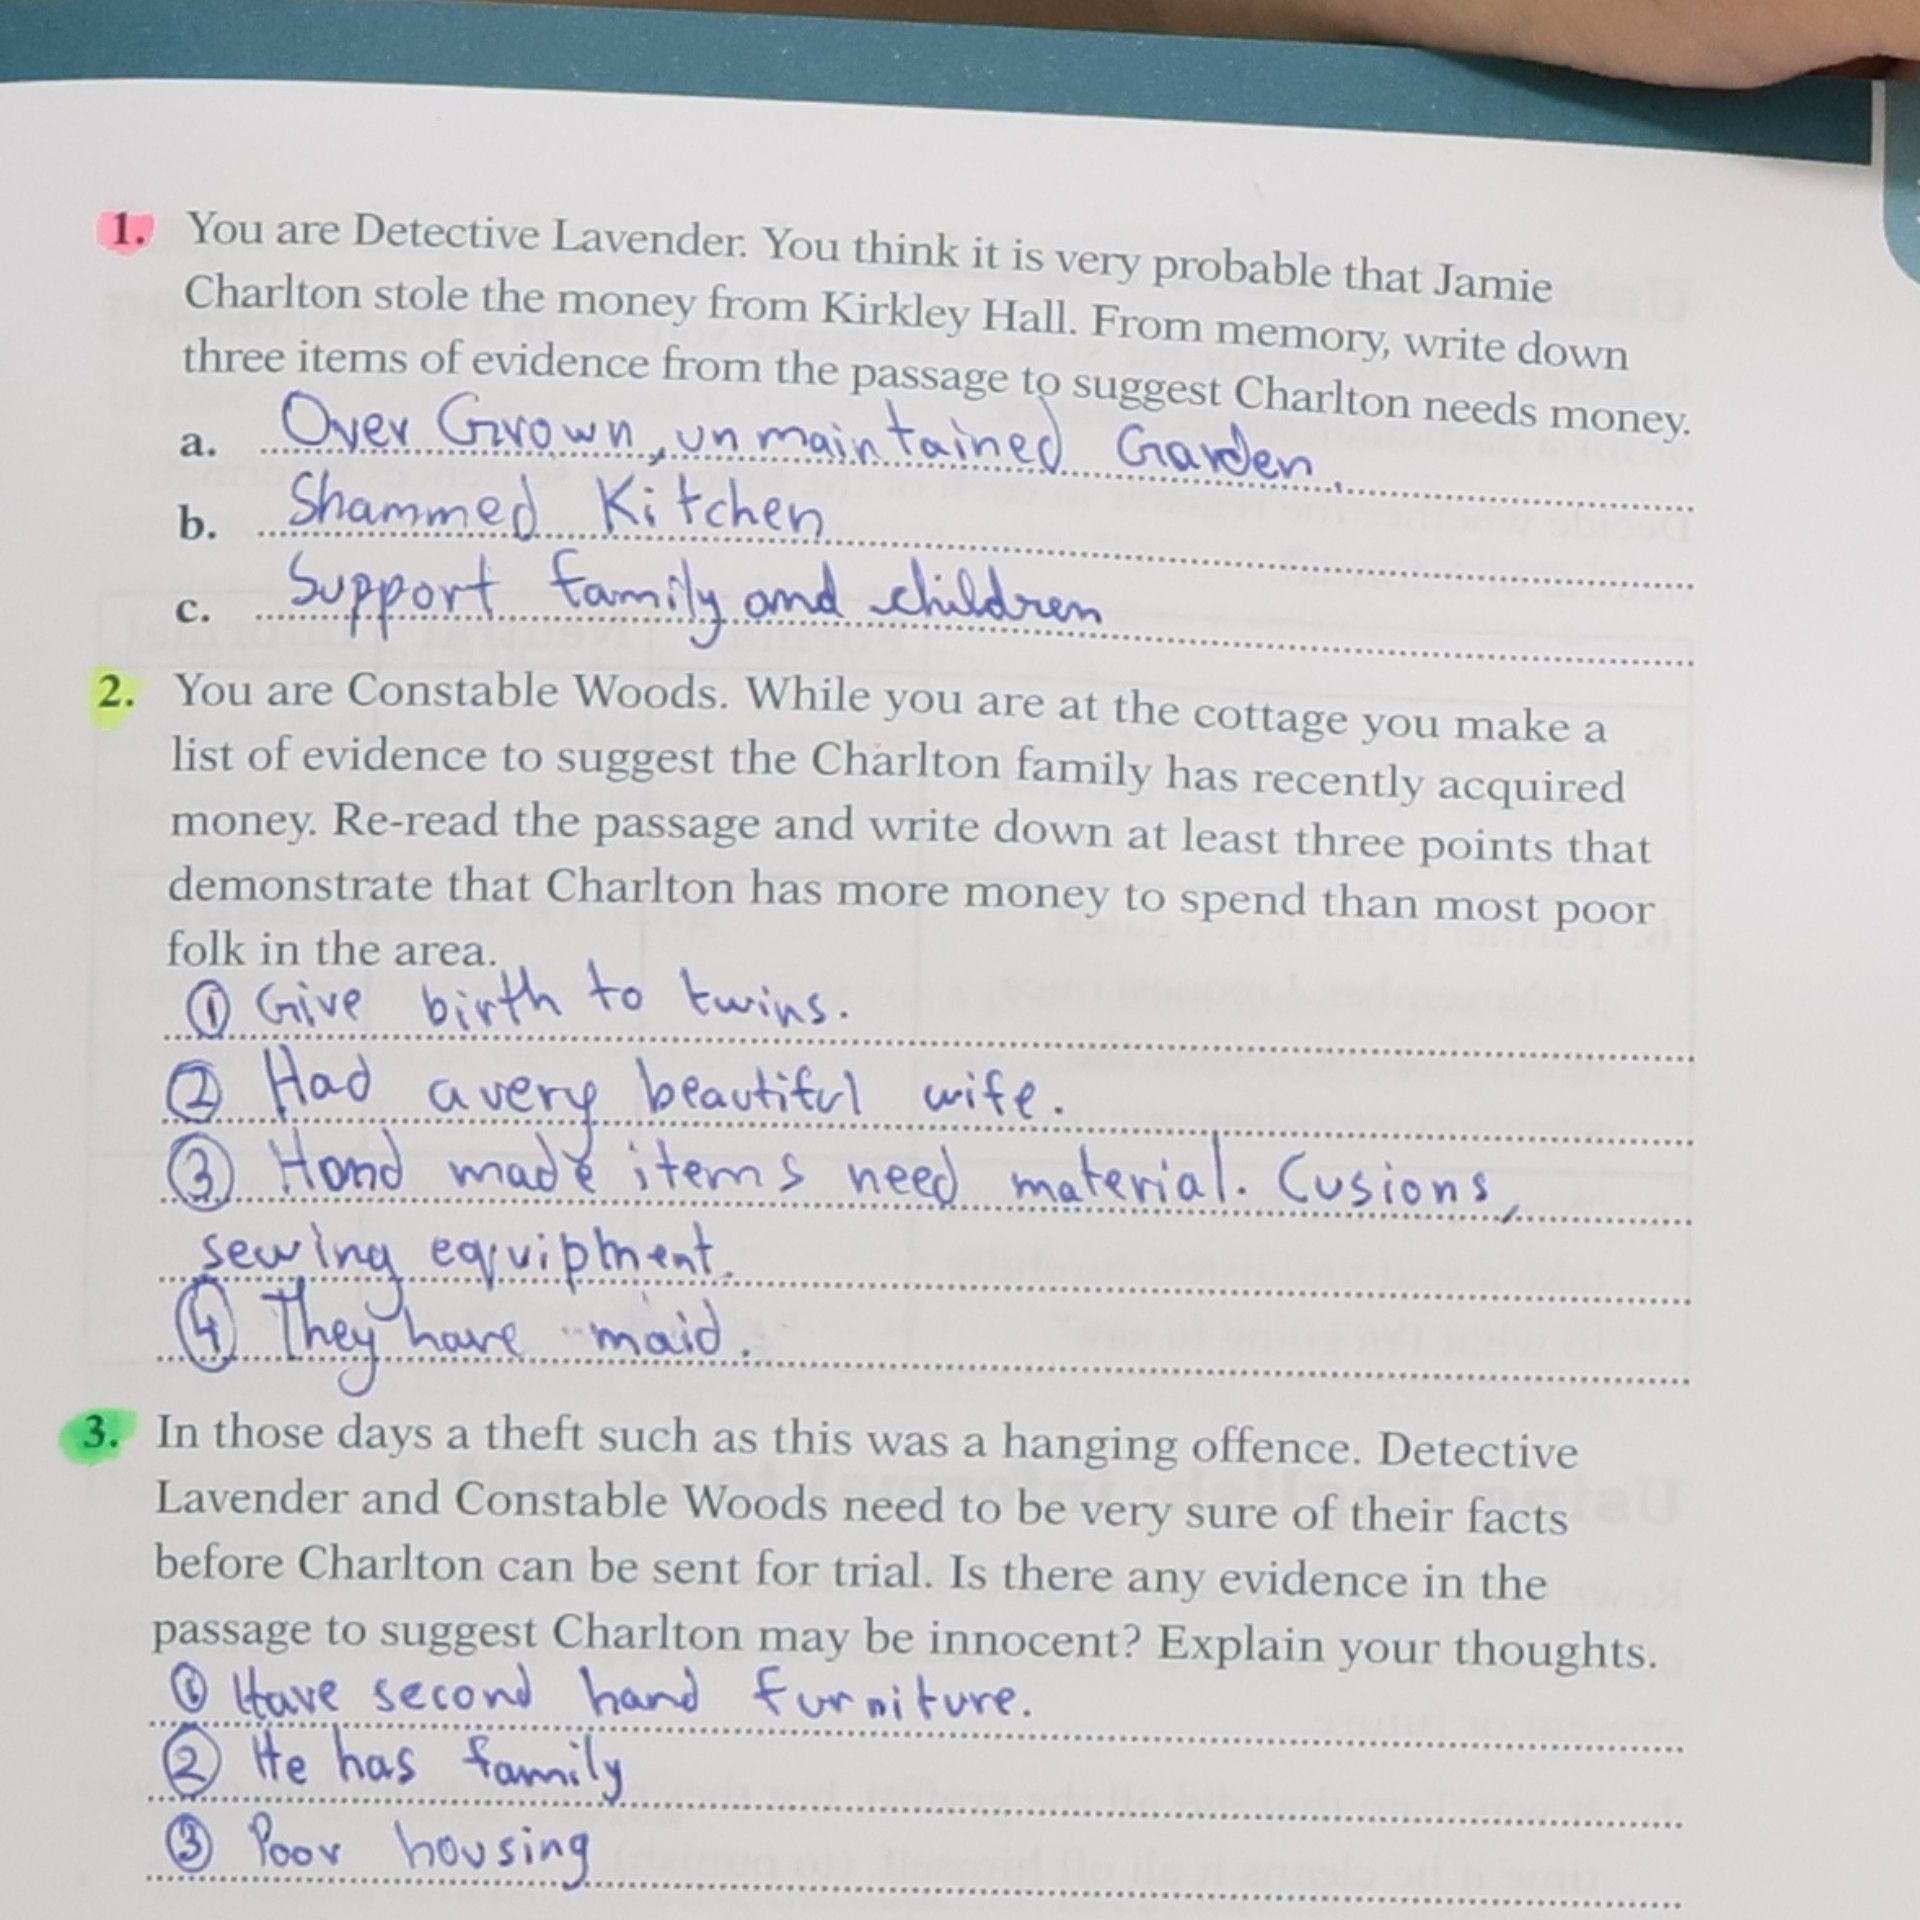 1. You are Detective Lavender. You think it is very probable that Jamie
Charlton stole the money from Kirkley Hall. From memory, write down
three items of evidence from the passage to suggest Charlton needs money.
a. Over Grown, unmaintained Garden.
b. Shammed Kitchen
c. Support family and children
2. You are Constable Woods. While you are at the cottage you make a
list of evidence to suggest the Charlton family has recently acquired
money. Re-read the passage and write down at least three points that
demonstrate that Charlton has more money to spend than most poor
folk in the area.
① Give birth to twins.
② Had a very beautiful wife.
③ Hand made items need material. Cusions,
sewing equipment.
④ They have maid.
3. In those days a theft such as this was a hanging offence. Detective
Lavender and Constable Woods need to be very sure of their facts
before Charlton can be sent for trial. Is there any evidence in the
passage to suggest Charlton may be innocent? Explain your thoughts.
① Have second hand furniture.
② He has family
③ Poor housing